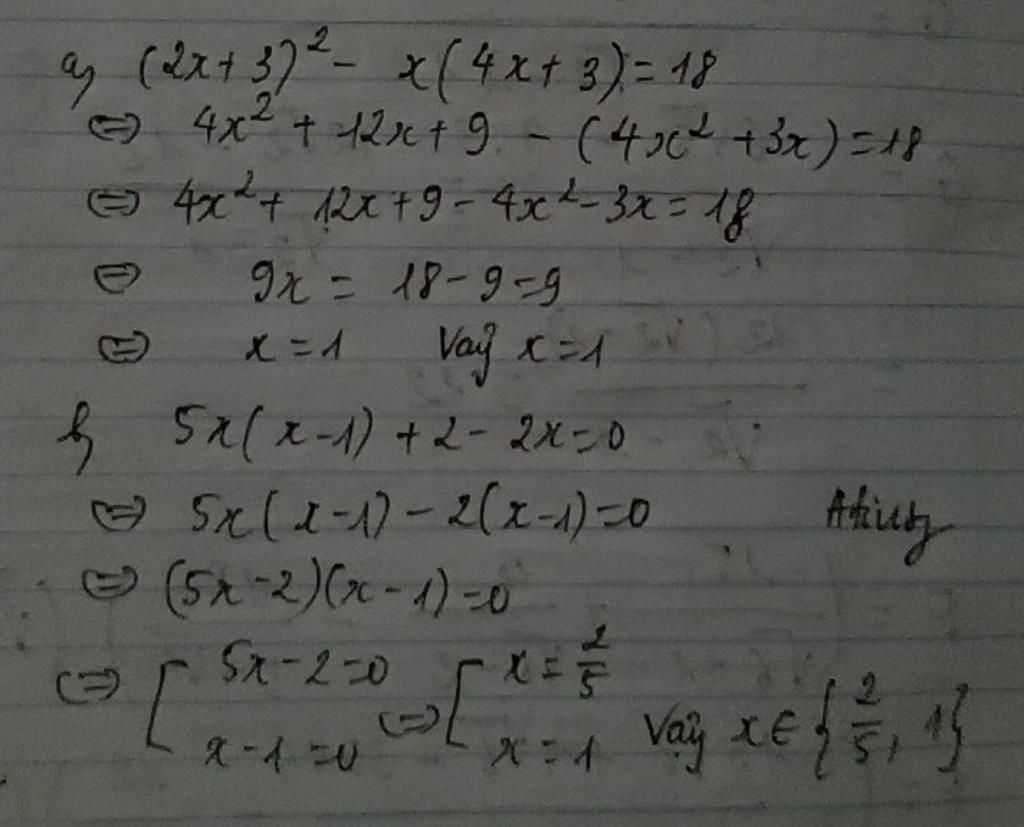 a, (2x+3)² - x(4x+3)=18
⇔ 4x² + 12x+9 - (4x² +3x)=18
⇔ 4x² + 12x+9-4x²-3x=18
⇔ 9x = 18-9=9
⇔ x=1 Vậy x=1
b, 5x(x-1)+2-2x=0
⇔ 5x(x-1)-2(x-1)=0
⇔ (5x-2)(x-1)=0
⇔ [ 5x-2=0 ⇔ [ x=2/5
x-1=0 x=1 Vậy x∈{2/5, 1}